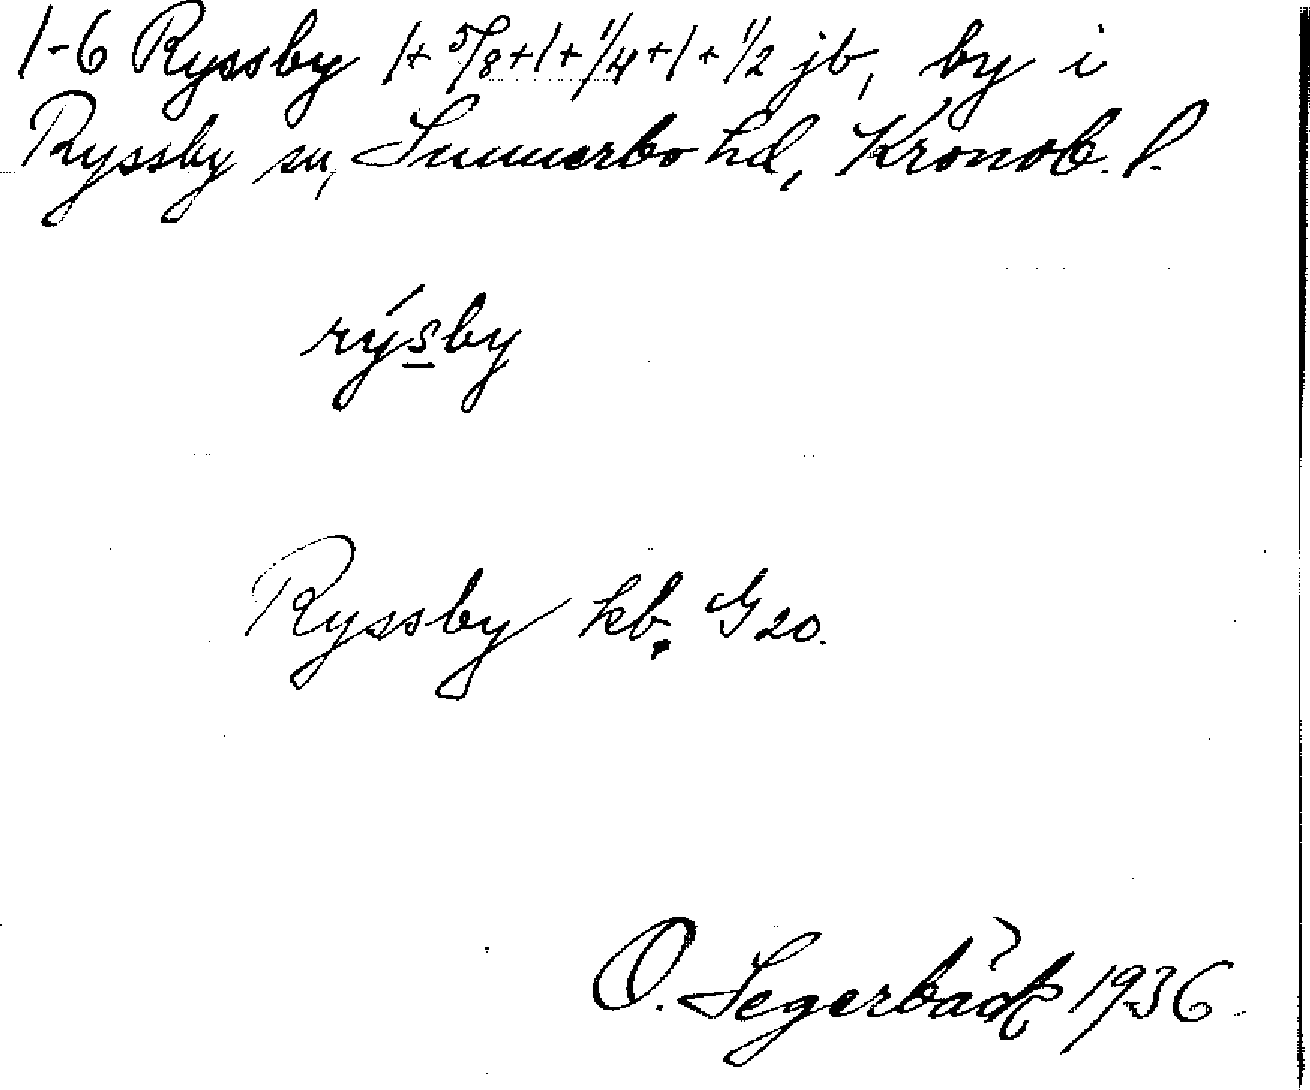 1-6 Ryssby 1+5/8+1+1/4+1+1/2 jb, by i
Ryssby sn, Sunnerbo hd, Kronob. l.
rýsby
Ryssby kb. G 20.
O. Segerbäck 1936.